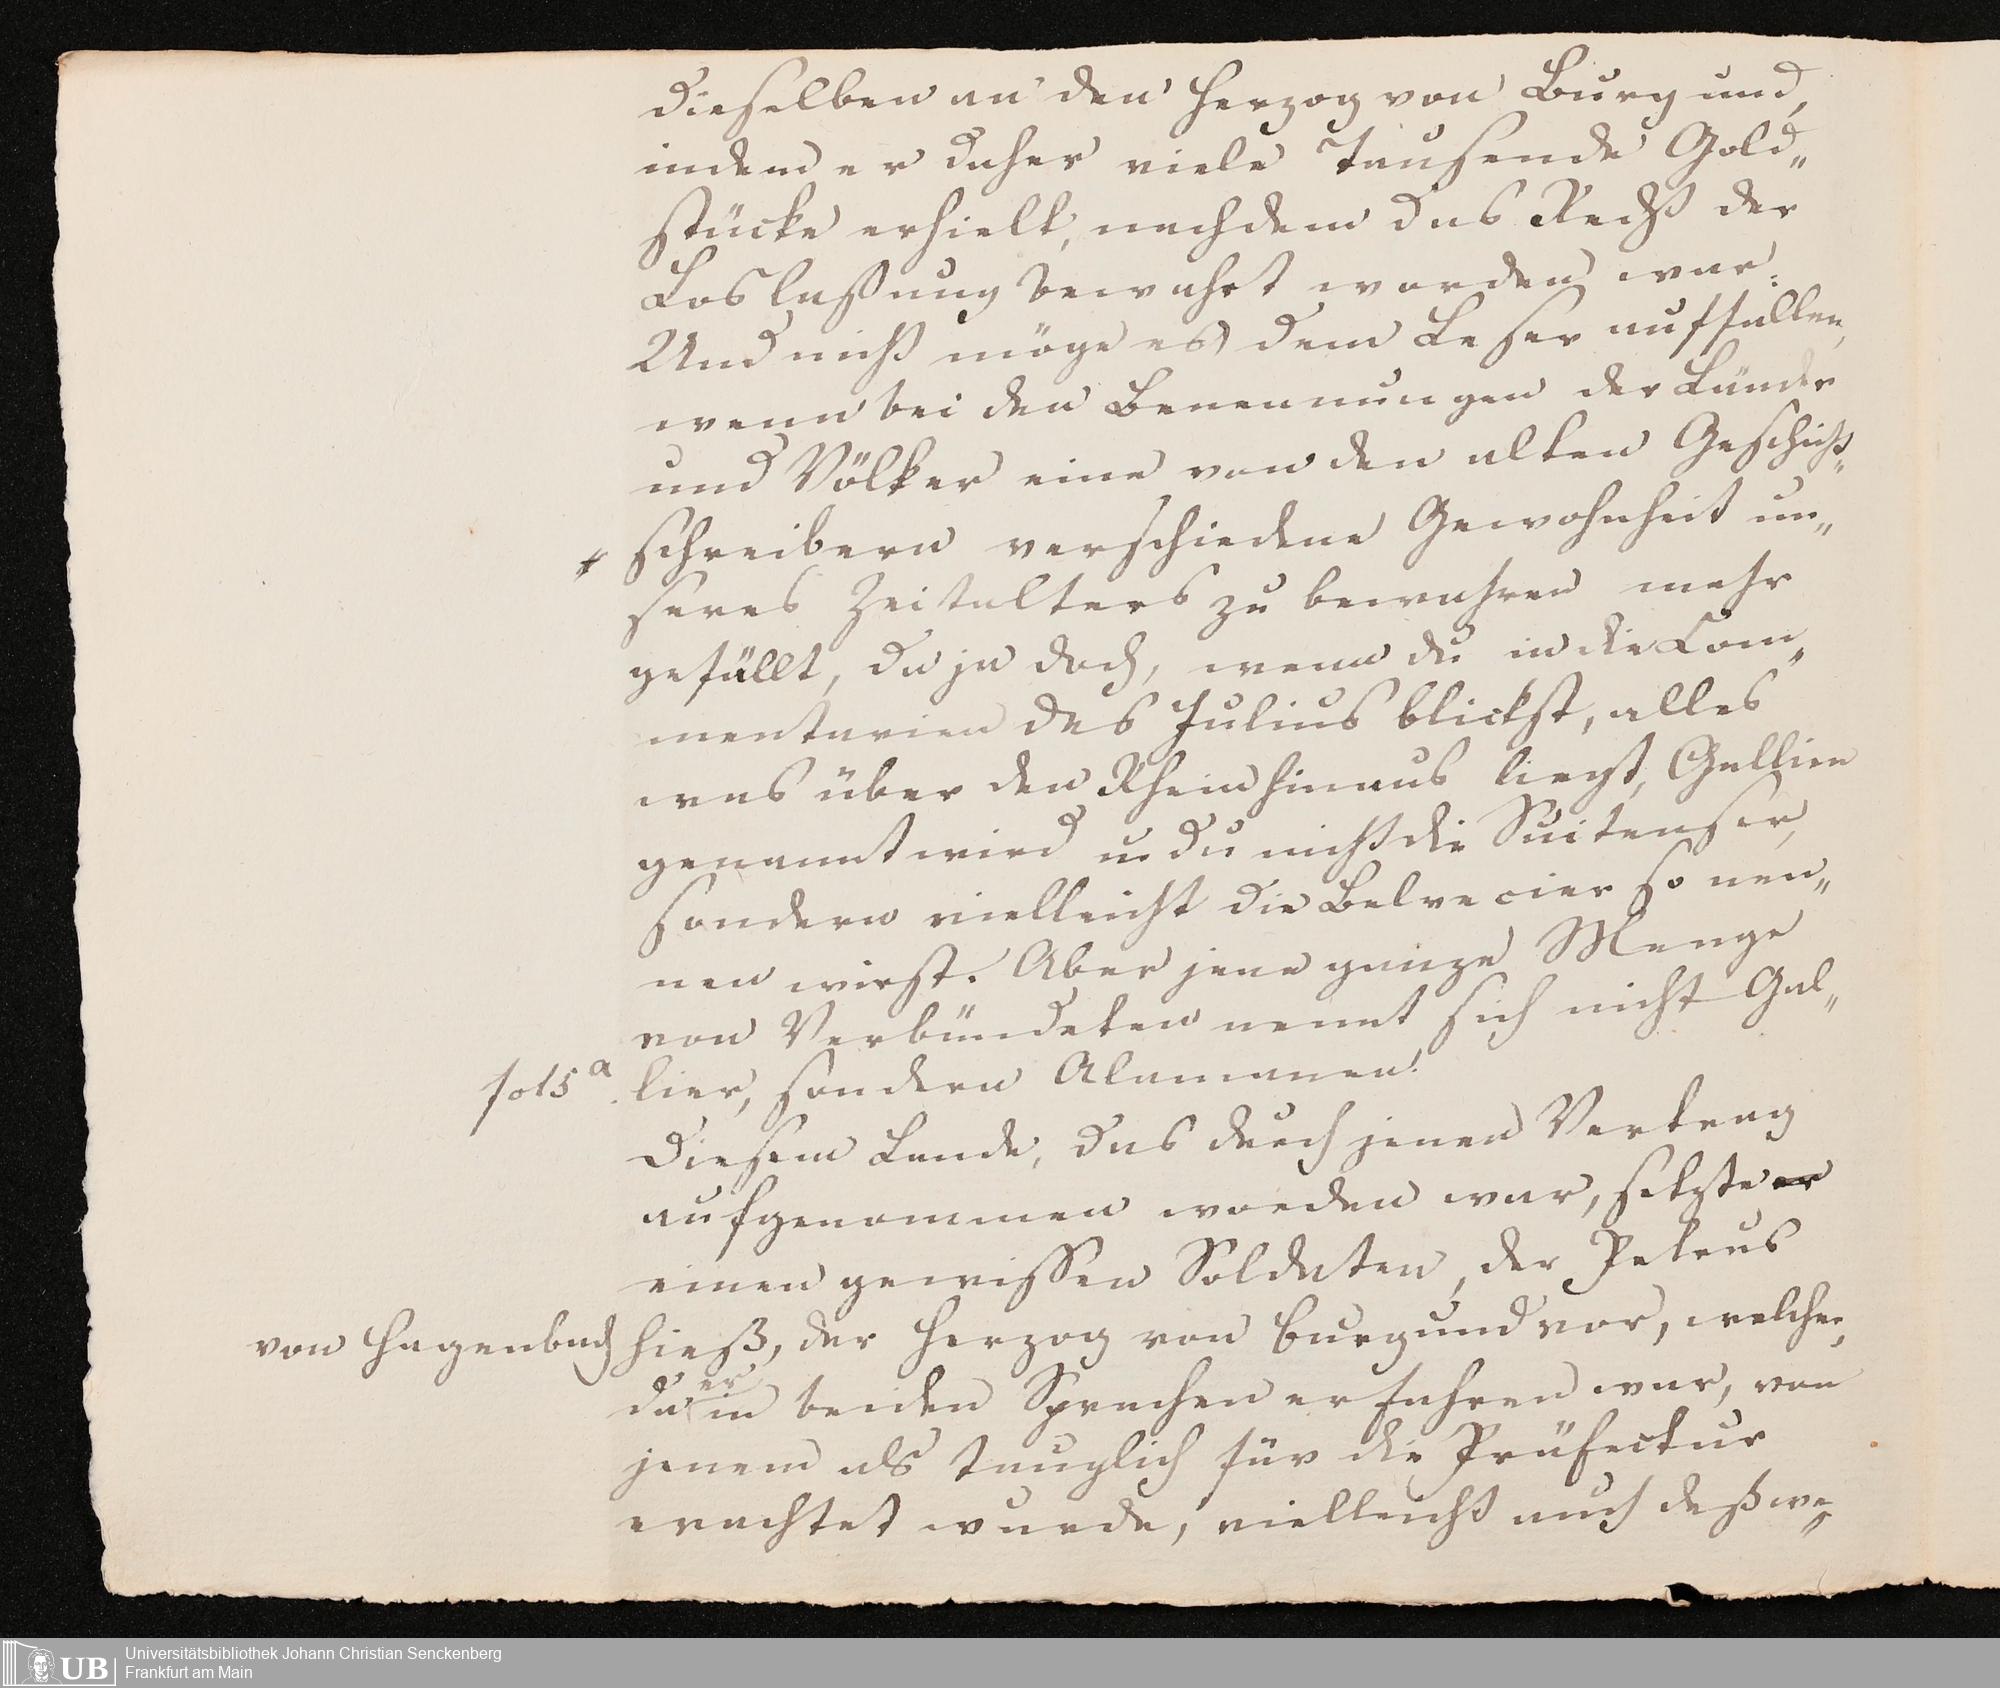 dieselben an den Herzog von Burgund,
indem er daher viele Tausende Gold„
stücke erhielt, nachdem das Recht der
Loslaßung bewahrt worden war.
Und nicht möge es dem Leser auffallen,
wenn bei den Benennungen der Länder
und Völker eine von den alten Geschicht„
schreibern verschiedene Gewohnheit un„
seres Zeitalters zu bewahren mehr
gefällt, da ja doch, wenn du in die Com„
mentarien des Julius blickst, alles
was über den Rhein hinaus liegt, Gallien
genannt wird u. du nicht die Suitenser,
sondern vielleicht die Belvecier so nen„
nen wirst. Aber jene ganze Menge
von Verbündeten nennt sich nicht Gal„
fol5 a lier, sondern Alamanen!
Diesem Lande, das durch jenen Vertrag
aufgenommen worden war, setzte er
einen gewissen Soldaten, der Petrus
von Hagenbach hieß, der Herzog von Burgund vor, welcher,
da er in beiden Sprachen erfahren war, von
jenem als tauglich für die Präfectur
erachtet wurde, vielleicht auch deßwe„
UB
Universitätsbibliothek Johann Christian Senckenberg
Frankfurt am Main